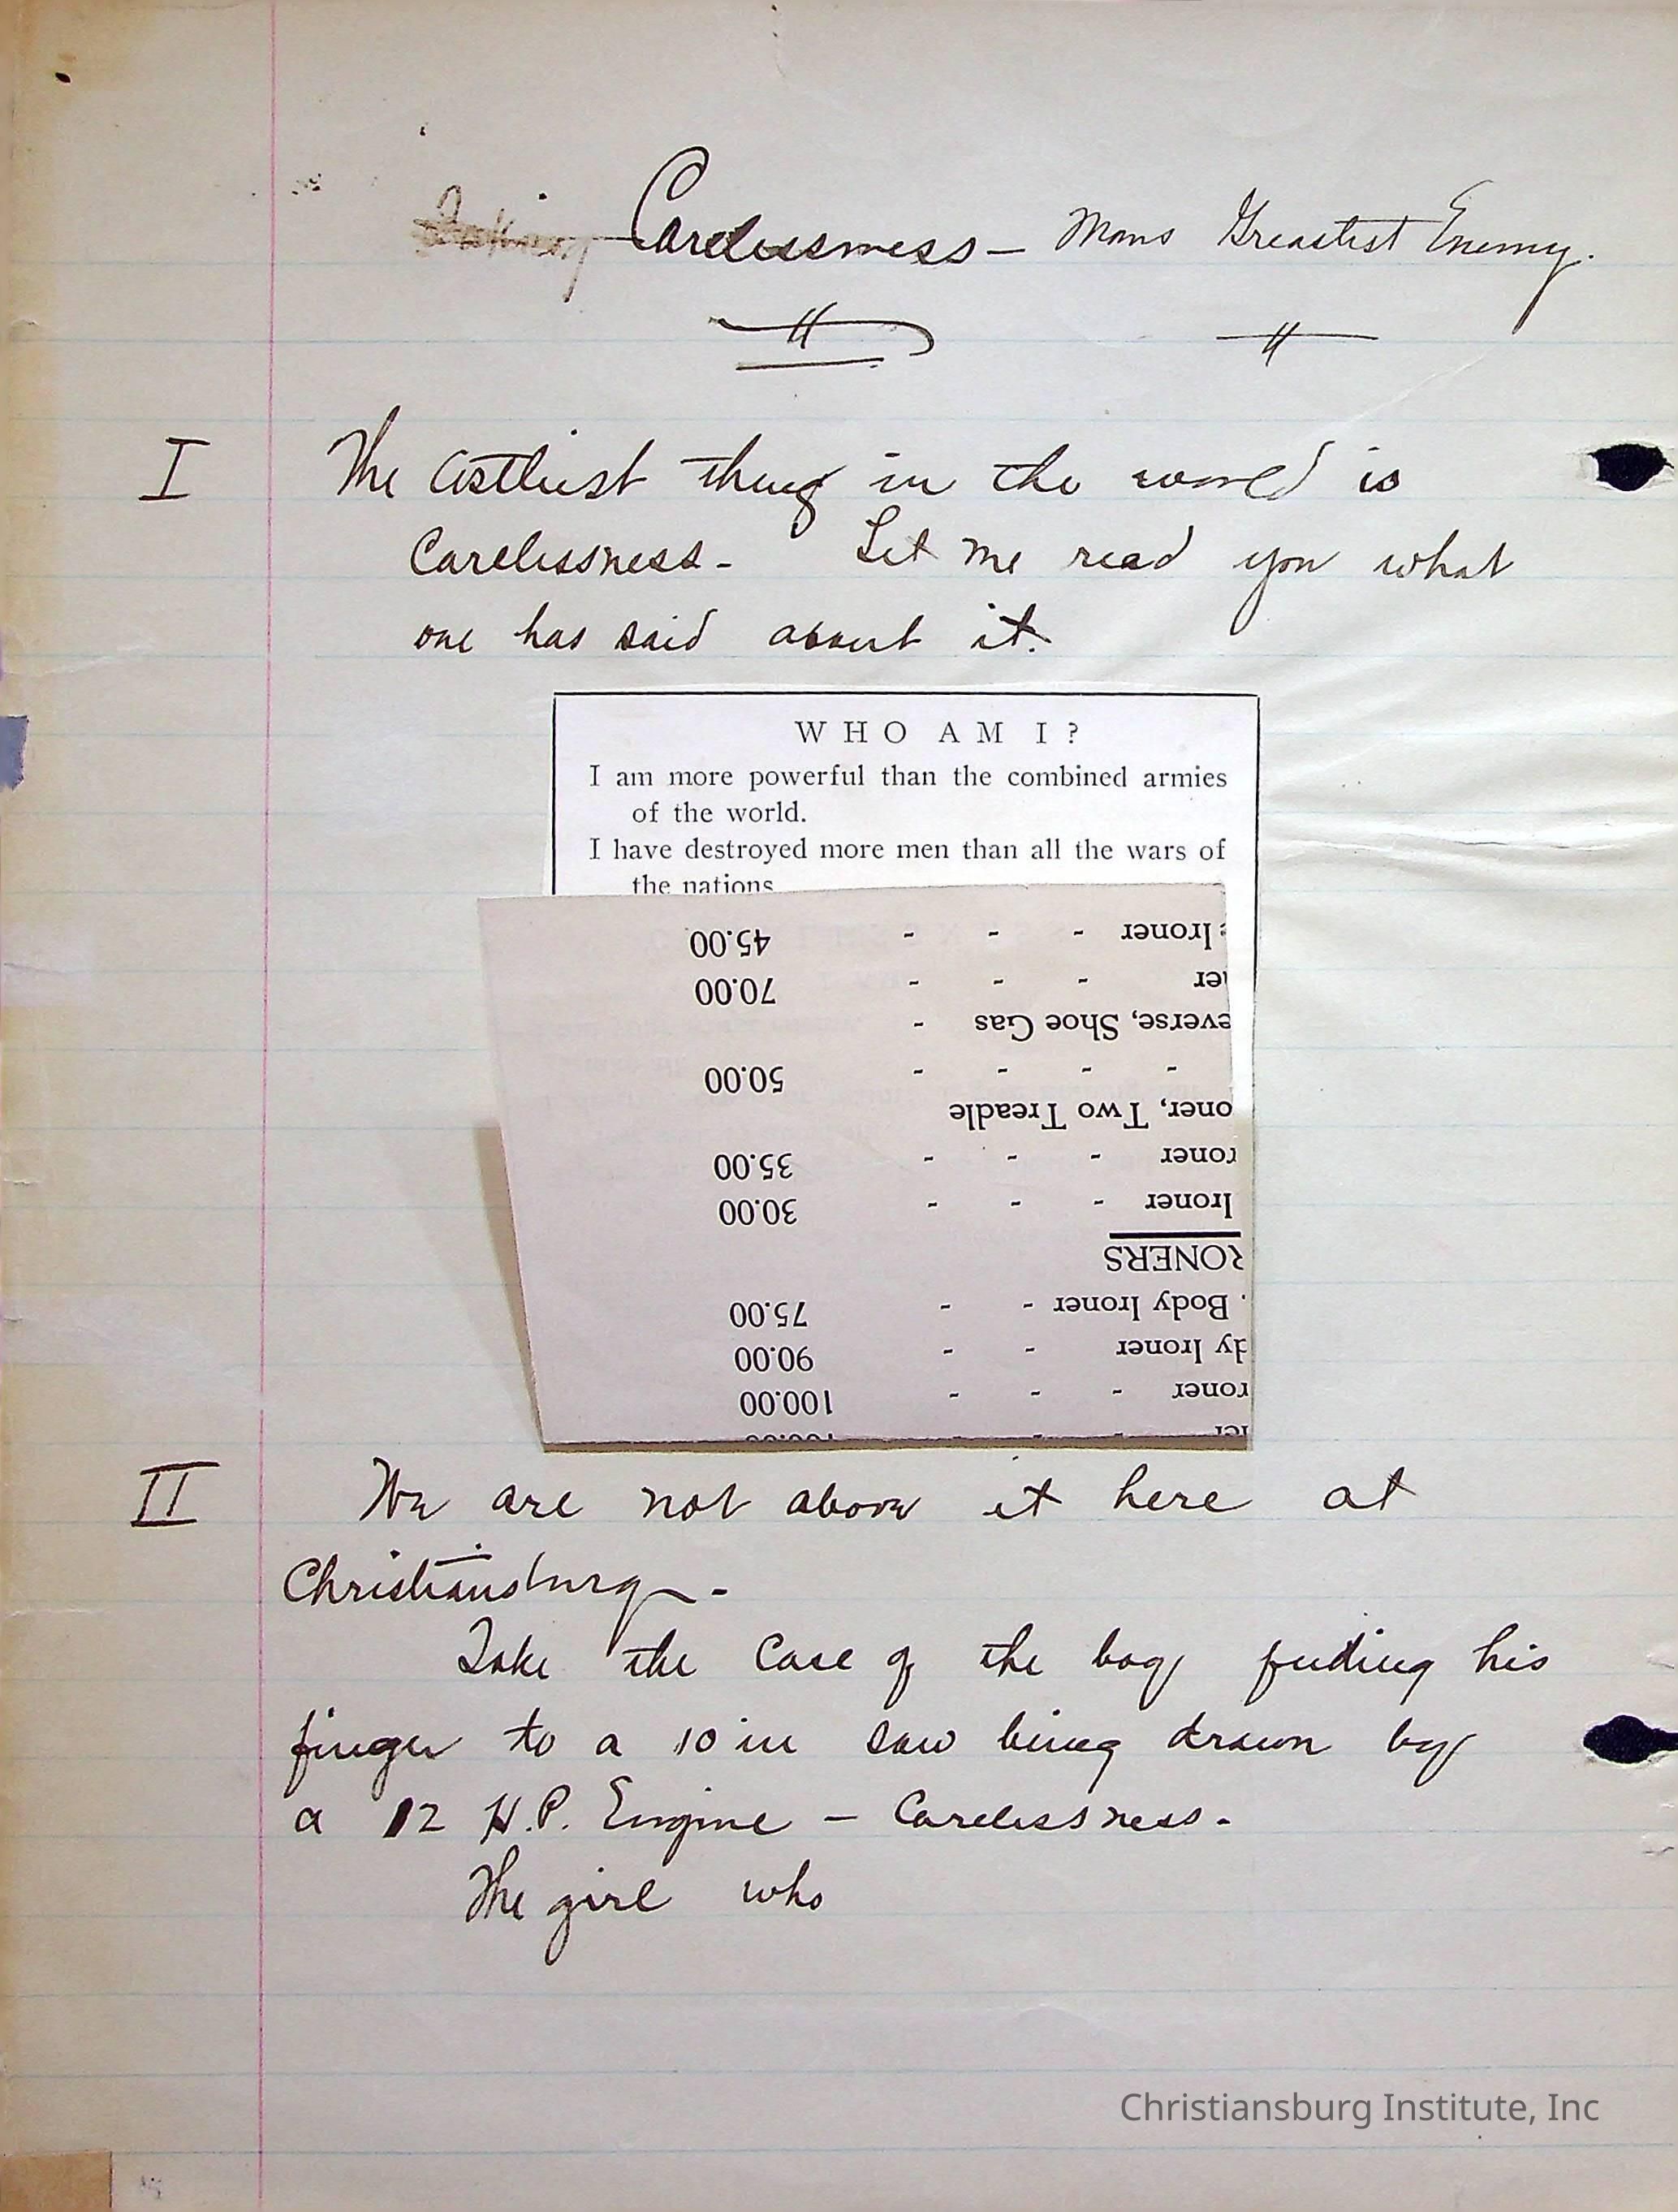 Carelessness — Mans Greastest Enemy.
I The Costliest thing in the world is
Carelessness - Let me read you what
one has said about it.
WHO AM I?
I am more powerful than the combined armies
of the world.
I have destroyed more men than all the wars of
the nations
Ironer - - - 45.00
er - - - 70.00
everse, Shoe Gas -
- - - - 50.00
oner, Two Treadle
roner - - - 35.00
Ironer - - - 30.00
RONERS
. Body Ironer - - 75.00
dy Ironer - - 90.00
roner - - - 100.00
II We are not above it here at
Christiansburg -
Take the Case of the boy feeding his
finger to a 10 in saw being drawn by
a 12 H.P. Engine — Carelessness.
The girl who
Christiansburg Institute, Inc